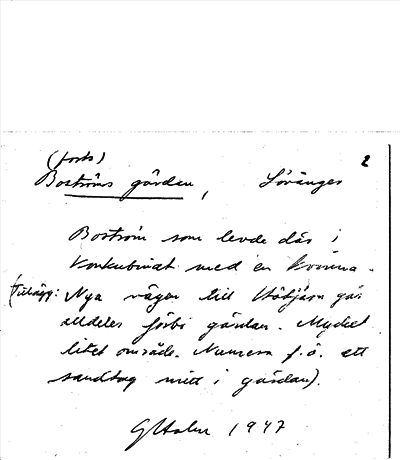 (forts) 2
Boströms gården, Söränges
Boström som levde där i
konkubinat med en kvinna.
(Tillägg: Nya vägen till Stötjärn går
alldeles förbi gården. Mycket
litet område. Numera f.ö. ett
sandtag mitt i gården).
GHolm 1947